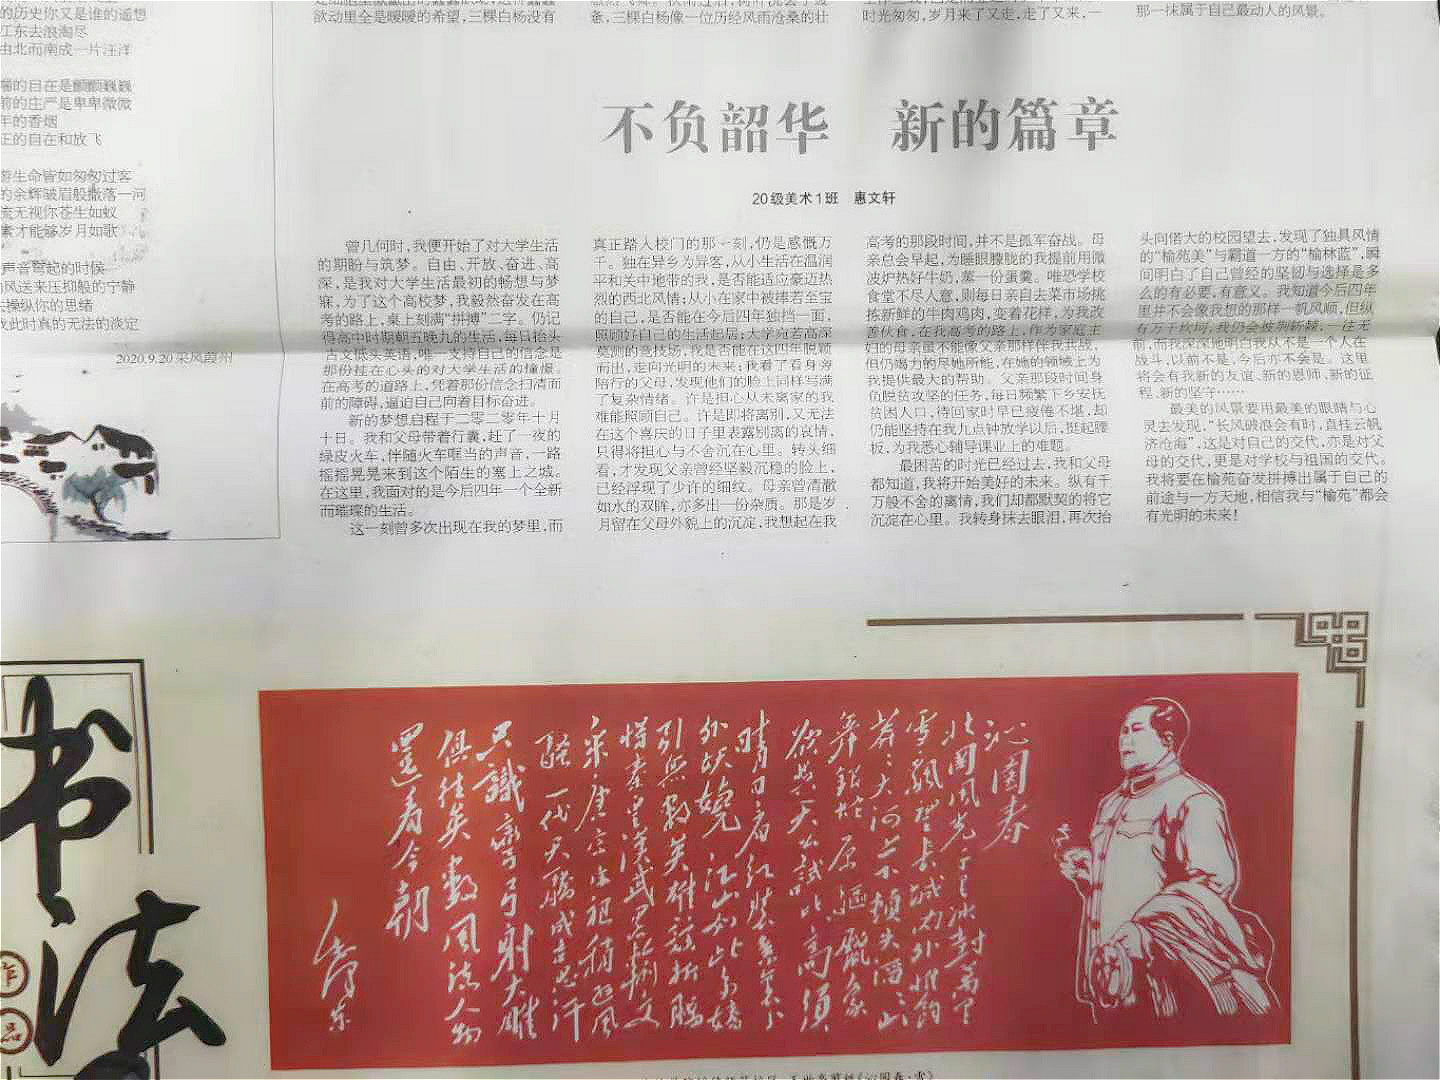 的历史你又是谁的遥想
江东去浪淘尽
由北而南成一片汪洋
端的自在是颤颤巍巍
前的庄严是卑卑微微
年的香烟
正的自在和放飞
游生命皆如匆匆过客
的余辉皱眉般撒落一河
流无视你苍生如蚁
素才能够岁月如歌
声音弯起的时候
风送来压抑般的宁静
操纵你的思绪
此时真的无法的淡定
2020.9.20 采风葭州
欲动里全是暖暖的希望,三棵白杨没有
三棵白杨像一位历经风雨沧桑的壮
时光匆匆,岁月来了又走,走了又来,一
那一抹属于自己最动人的风景。
不负韶华 新的篇章
20级美术1班 惠文轩
曾几何时,我便开始了对大学生活
的期盼与筑梦。自由、开放、奋进、高
深,是我对大学生活最初的畅想与梦
寐,为了这个高校梦,我毅然奋发在高
考的路上,桌上刻满“拼搏”二字。仍记
得高中时期朝五晚九的生活,每日抬头
古文低头英语,唯一支持自己的信念是
那份挂在心头的对大学生活的憧憬。
在高考的道路上,凭着那份信念扫清面
前的障碍,逼迫自己向着目标奋进。
新的梦想启程于二零二零年十月
十日。我和父母带着行囊,赶了一夜的
绿皮火车,伴随火车哐当的声音,一路
摇摇晃晃来到这个陌生的塞上之城。
在这里,我面对的是今后四年一个全新
而璀璨的生活。
这一刻曾多次出现在我的梦里,而
真正踏入校门的那一刻,仍是感慨万
千。独在异乡为异客,从小生活在温润
平和关中地带的我,是否能适应豪迈热
烈的西北风情;从小在家中被捧若至宝
的自己,是否能在今后四年独挡一面,
照顾好自己的生活起居;大学宛若高深
莫测的竞技场,我是否能在这四年脱颖
而出,走向光明的未来;我看了看身旁
陪行的父母,发现他们的脸上同样写满
了复杂情绪。许是担心从未离家的我
难能照顾自己。许是即将离别,又无法
在这个喜庆的日子里表露别离的哀情,
只得将担心与不舍沉在心里。转头细
看,才发现父亲曾经坚毅沉稳的脸上,
已经浮现了少许的细纹。母亲曾清澈
如水的双眸,亦多出一份杂质。那是岁
月留在父母外貌上的沉淀,我想起在我
高考的那段时间,并不是孤军奋战。母
亲总会早起,为睡眼朦胧的我提前用微
波炉热好牛奶,蒸一份蛋羹。唯恐学校
食堂不尽人意,则每日亲自去菜市场挑
拣新鲜的牛肉鸡肉,变着花样,为我改
善伙食,在我高考的路上,作为家庭主
妇的母亲虽不能像父亲那样伴我共战,
但仍竭力的尽她所能,在她的领域上为
我提供最大的帮助。父亲那段时间身
负脱贫攻坚的任务,每日频繁下乡安抚
贫困人口,待回家时早已疲倦不堪,却
仍能坚持在我九点钟放学以后,挺起腰
板,为我悉心辅导课业上的难题。
最困苦的时光已经过去,我和父母
都知道,我将开始美好的未来。纵有千
万般不舍的离情,我们却都默契的将它
沉淀在心里。我转身抹去眼泪,再次抬
头向偌大的校园望去,发现了独具风情
的“榆苑美”与霸道一方的“榆林蓝”,瞬
间明白了自己曾经的坚韧与选择是多
么的有必要,有意义。我知道今后四年
里并不会像我想的那样一帆风顺,但纵
有万千坎坷,我仍会披荆斩棘,一往无
前,而我深深地明白我从不是一个人在
战斗,以前不是,今后亦不会是。这里
将会有我新的友谊、新的恩师、新的征
程、新的坚守……
最美的风景要用最美的眼睛与心
灵去发现,“长风破浪会有时,直挂云帆
济沧海”,这是对自己的交代,亦是对父
母的交代,更是对学校与祖国的交代。
我将要在榆苑奋发拼搏出属于自己的
前途与一方天地,相信我与“榆苑”都会
有光明的未来!
书法
作品
沁园春
北国风光千里冰封万里
雪飘望长城内外惟余
莽莽大河上下顿失滔滔山
舞银蛇原驱腊象
欲与天公试比高须
晴日看红装素裹分
外妖娆江山如此多娇
引无数英雄竞折腰
惜秦皇汉武略输文
采唐宗宋祖稍逊风
骚一代天骄成吉思汗
只识弯弓射大雕
俱往矣数风流人物
还看今朝
毛泽东
《沁园春·雪》